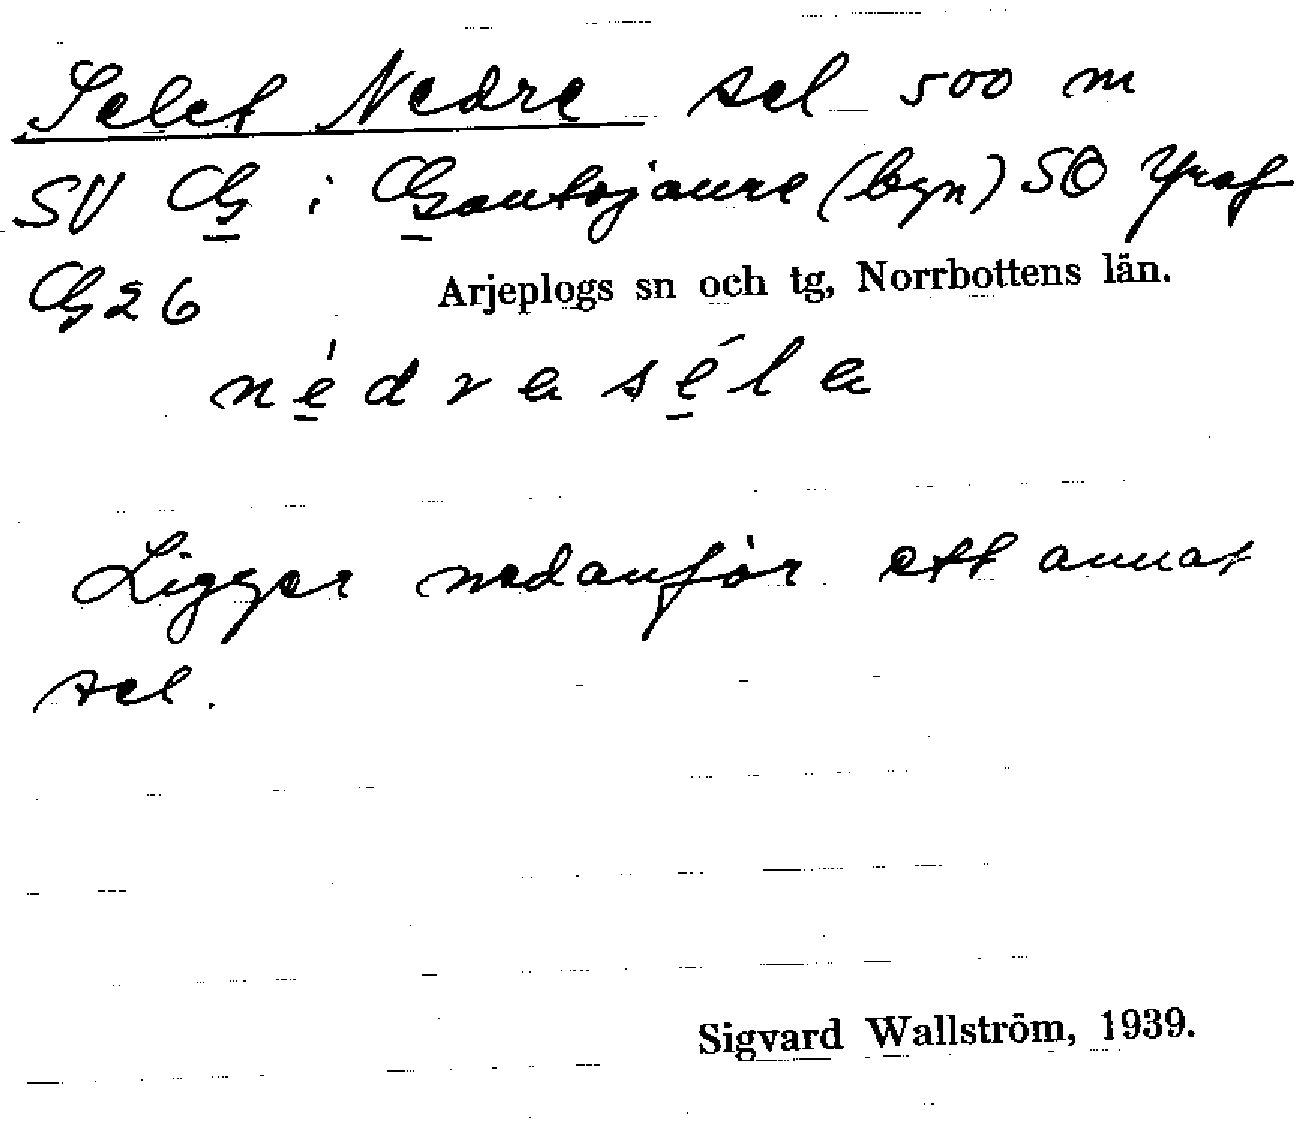 Selet Nedre sel 500 m
SV G i Gautojaure (byn) SO
G 26
Arjeplogs sn och tg, Norrbottens län.
nédra séla
Ligger nedanför ett annat
sel.
Sigvard Wallström, 1939.